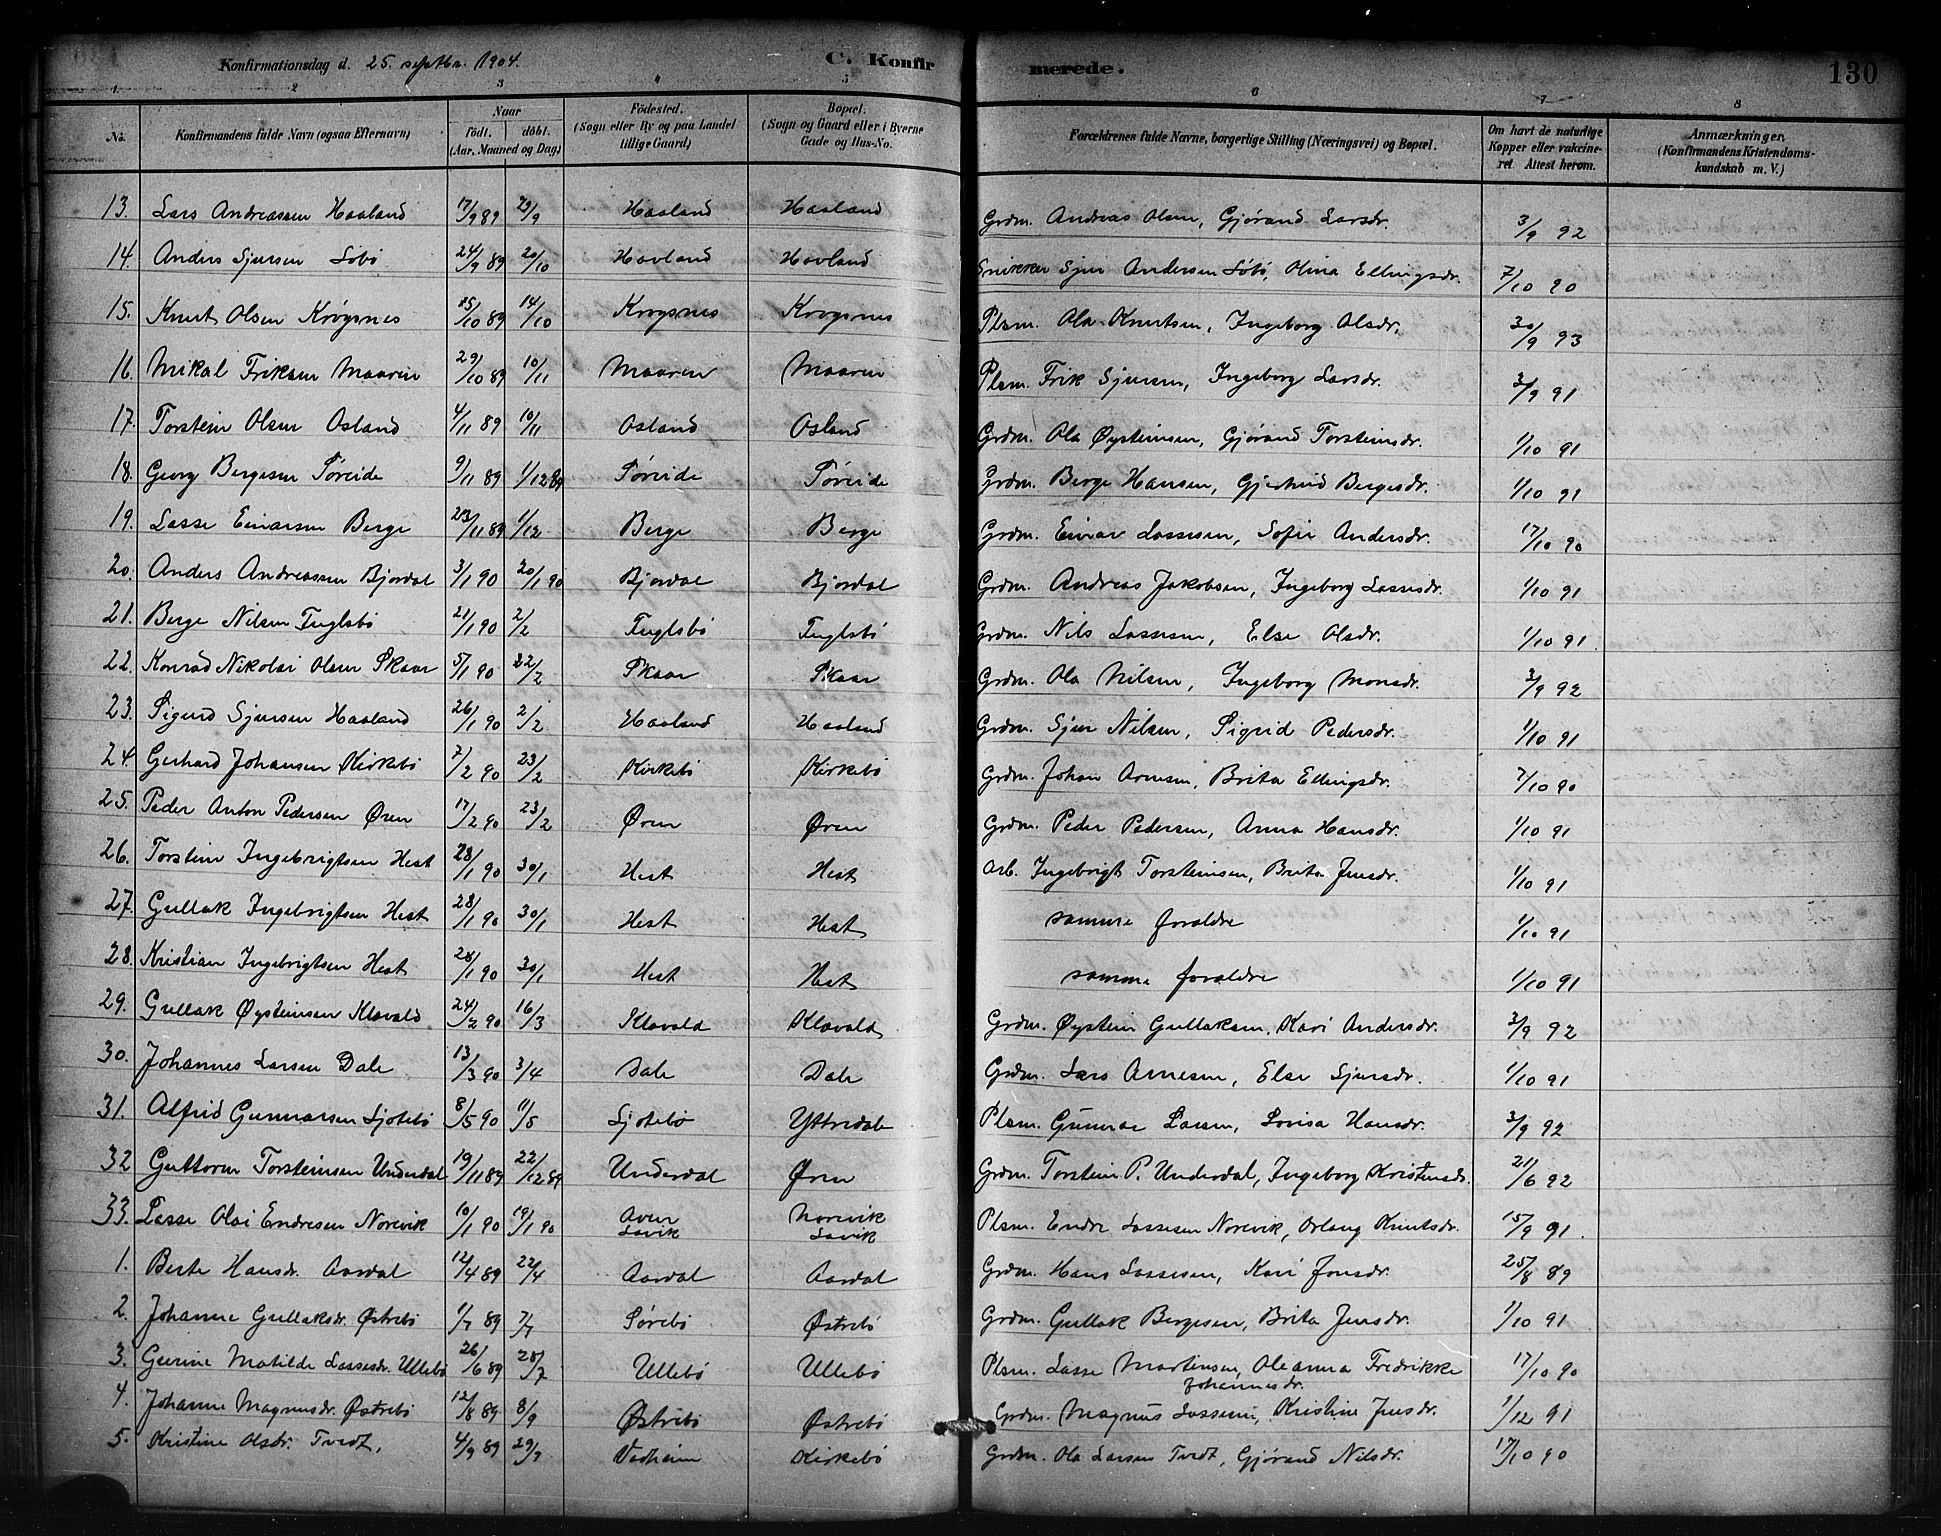 Konfirmationsdag d. 25. septbr. 1904. C. Konfirmerede. 130
1. 2 3 4 5 6 7 8
No. Konfirmandens fulde Navn (ogsaa Efternavn) Naar født. døbt. (Aar, Maaned og Dag) Födested. (Sogn eller By og paa Landet tillige Gaard) Bopæl. (Sogn og Gaard eller i Byerne Gade og Hus-No. Forældrenes fulde Navne, borgerlige Stilling (Næringsvei) og Bopæl. Om havt de naturlige Kopper eller vakcineret. Attest herom. Anmærkninger. (Konfirmandens Kristendomskundskab m. V.)
13. Lars Andreassen Haaland 17/9 89 29/9 Haaland Haaland Grdm. Andreas Olsen, Gjørand Larsdr. 3/9 92
14. Anders SjursenLøbø 24/9 89 20/10 Hovland Hovland Snikker Sjur Andersen Løbø, Olina Ellingsdr. 7/10 90
15. Knut Olsen Krøgsnes 5/10 89 14/10 Krogsnes Krogsnes Plsm. Ola Knutsen, Ingeborg Olsdr. 30/9 93
16. Mikal Eriksen Maaren 29/10 89 10/11 Maaren Maaren Plsm. Erik Sjursen, Ingeborg Larsdr. 3/9 91
17. Torstein Olsen Osland 4/11 89 10/11 Osland Osland Grdm. Ola Øysteinsen, Gjørand Torsteinsdr. 1/10 91
18. Georg Bergesen Søreide 9/11 89 1/12 89 Søreide Søreide Grdm. Berge Hansen, Gjertrud Bergesdr. 1/10 91
19. Lasse Einarsen Berge 23/11 89 1/12 Berge Berge Grdm. Einar Lassesen, Sofie Andersdr. 17/10 90
20. Anders Andreassen Bjordal 3/1 90 20/1 90 Bjordal Bjordal Grdm. Andreas Jakobsen, Ingeborg Lassesdr. 1/10 91
21. Berge Nilsen Fuglsbø 21/1 90 2/2 Fuglsbø Fuglsbø Grdm. Nils Lassesen, Else Olsdr. 1/10 91
22. Konrad Nikolai Olsen Skaar 5/1 90 22/2 Skaar Skaar Grdm. Ola Nilsen, Ingeborg Monsdr. 3/9 92
23. Sigurd Sjursen Haaland 26/1 90 2/2 Haaland Haaland Grdm. Sjur Nilsen, Sigrid Pedersdr. 1/10 91
24 Gerhard Johansen Kirkebø 7/2 90 23/2 Kirkebø Kirkebø Grdm. Johan Arnesen, Brita Ellingsdr. 7/10 90
25. Peder Anton Pedersen Øren 17/2 90 23/2 Øren Øren Grdm. Peder Pedersen, Anna Hansdr. 1/10 91
26. Torstein Ingebrigtsen Hest 28/1 90 30/1 Hest Hest Arb. Ingebrigt Torsteinsen, Brita Jensdr. 1/10 91
27. Gullak Ingebrigtsen Hest 28/1 90 30/1 Hest Hest samme forældre 1/10 91
28. Kristian Ingebrigtsen Hest 28/1 90 30/1 Hest Hest samme forældre 1/10 91
29. Gullak Øysteinsen Klævold 24/2 90 16/3 Klævold Klævold Grdm. Øystein Gullaksen, Kari Andersdr. 3/9 92
30. Johannes Larsen Dale 13/3 90 3/4 Dale Dale Grdm. Lars Arnesen, Else Sjursdr. 1/10 91
31. Alfrid Gunnarsen Ljotebø 8/5 90 11/5 Ljotebø Yttredale Plsm. Gunnar Larsen, Lovisa Hansdr. 3/9 92
32 Guttorm Torsteinsen Underdal 19/11 89 22/12 89 Underdal Øren Grdm. Torstein P. Underdal, Ingeborg Kristensdr. 21/6 92
33. Lasse Olai Endresen Norevik 10/1 90 19/1 90 Aven Lavik Norevik Lavik Plsm. Endre Lassesen Norevik, Orlaug Knutsdr. 15/9 91
1. Berte Hansdr. Aardal 12/4 89 22/4 Aardal Aardal Grdm. Hans Lassesen, Kari Jonsdr. 25/8 89
2. Johanne Gullaksdr. Østrebø 1/7 89 7/7 Sørebø Østrebø Grdm. Gullak Bergesen, Brita Jensdr. 1/10 91
3. Gurine Matilde Lassesdr. Ullebø 26/6 89 28/7 Ullebø Ullebø Plsm. Lasse Martinsen, Oleanna Fredrikke Johannesdr. 17/10 90
4. Johanne Magnusdr. Østrebø 12/8 89 8/9 Østrebø Østrebø Grdm. Magnus Lassesen, Kristine Jensdr. 1/12 91
5. Kristine Olsdr. Tvedt, 4/9 89 29/9 Vadheim Kirkebø Grdm. Ola Larsen Tvedt, Gjørand Nilsdr. 17/10 90